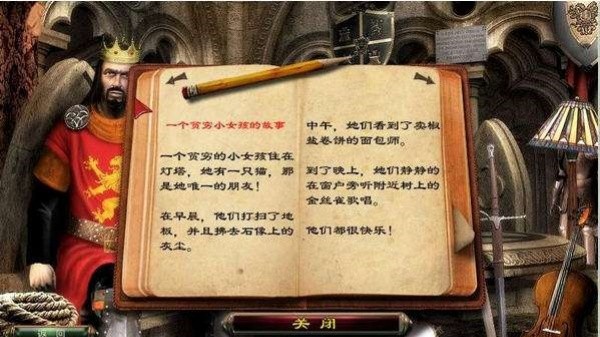 一个贫穷小女孩的故事
一个贫穷的小女孩住在
灯塔，她有一只猫，那
是她唯一的朋友！
在早晨，他们打扫了地
板，并且拂去石像上的
灰尘。
中午，她们看到了卖椒
盐卷饼的面包师。
到了晚上，她们静静的
在窗户旁听附近树上的
金丝雀歌唱。
他们都很快乐！
关闭
返回